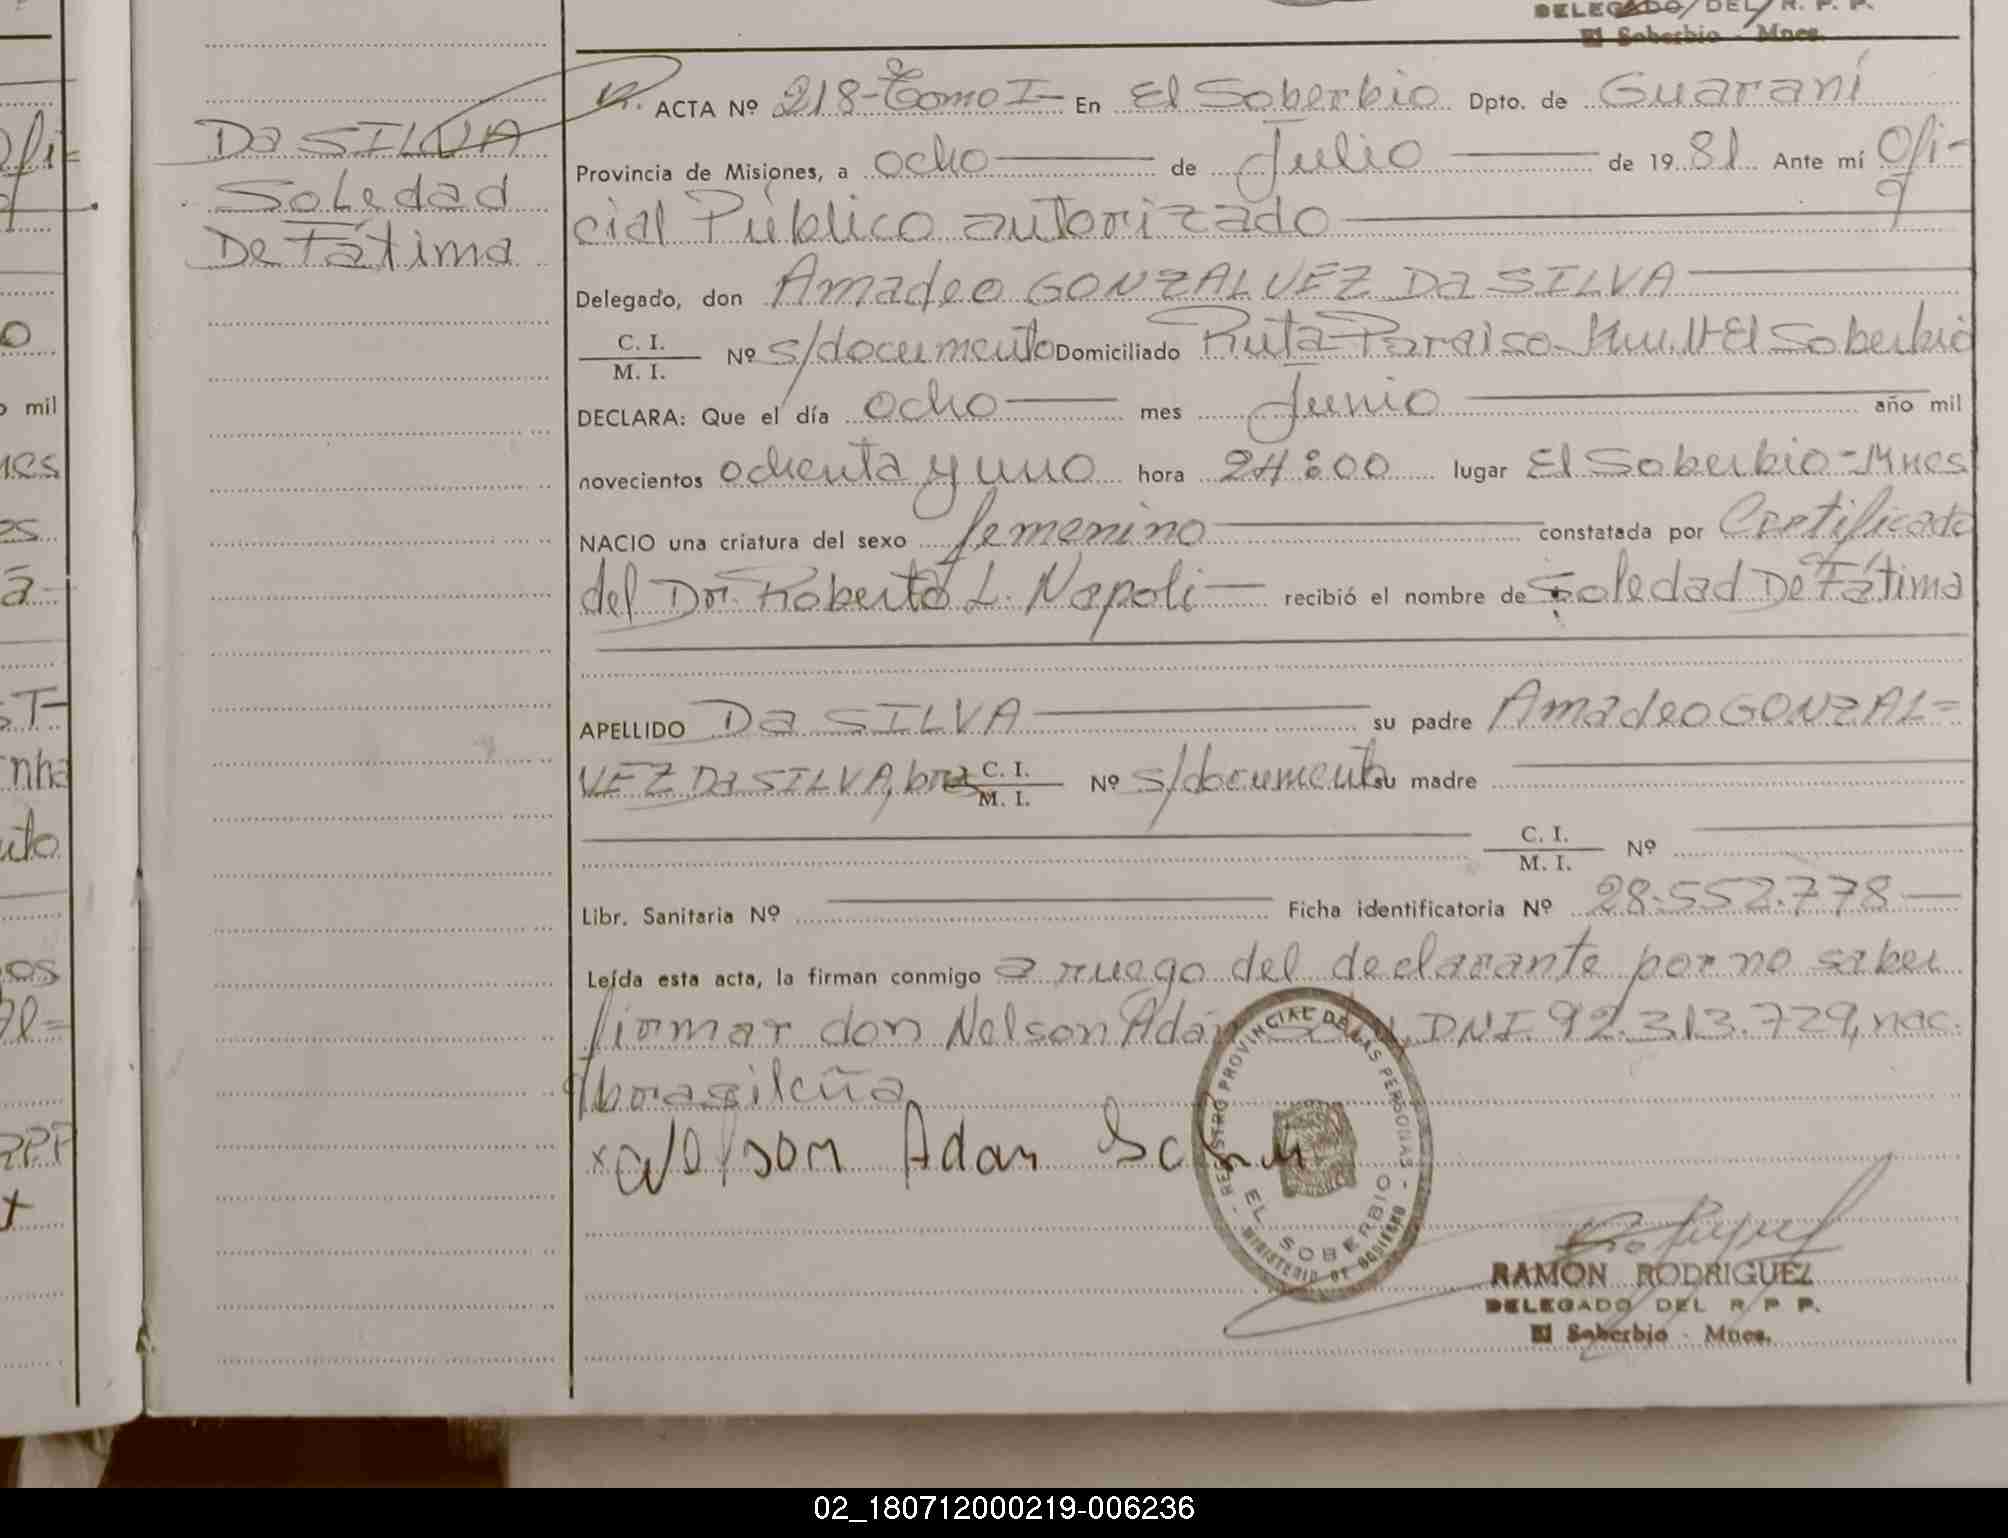 DELEGADO DEL R. P. P.
El Soberbio - Mnes.
Da SILVA
Soledad
De Fátima
ACTA Nº 218-Tomo I- En El Soberbio Dpto. de Guaraní
Provincia de Misiones, a ocho de Julio de 1981 Ante mí Ofi-
cial Público autorizado
Delegado, don Amadeo GONZALVEZ Da SILVA
C. I.
M. I. Nº s/documento Domiciliado Ruta Paraiso El Soberbio
DECLARA: Que el día ocho mes Junio año mil
novecientos ochenta y uno hora 24:00 lugar El Soberbio-Mnes
NACIO una criatura del sexo femenino constatada por Certificado
del Dr. Roberto L. Napoli recibió el nombre de Soledad De Fátima
APELLIDO Da SILVA su padre Amadeo GONZAL=
VEZ Da SILVA, bras C. I.
M. I. Nº s/documento su madre
C. I.
M. I. Nº
Libr. Sanitaria Nº Ficha identificatoria Nº 28.552.778
Leída esta acta, la firman conmigo a ruego del declarante por no saber
firmar don Nelson Adán DNI. 92.313.729, nac.
brasileña
x Nelson Adan
REGISTRO PROVINCIAL DE LAS PERSONAS
EL SOBERBIO
MINISTERIO DE GOBIERNO
RAMON RODRIGUEZ
DELEGADO DEL R. P. P.
El Soberbio - Mnes.
02_180712000219-006236